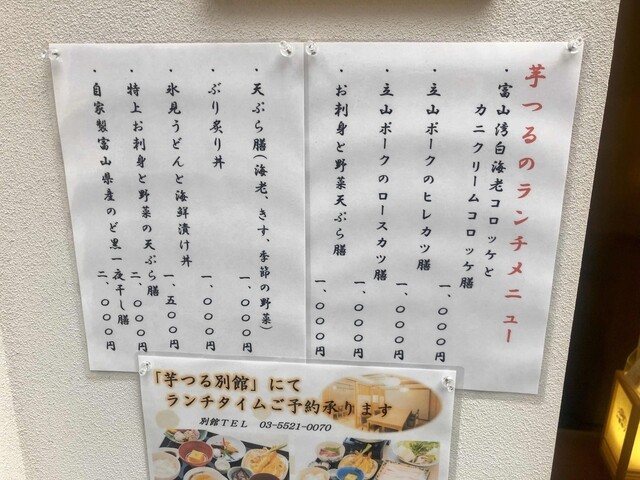 芋つるのランチメニュー
・富山湾白海老コロッケと
カニクリームコロッケ膳
一、〇〇〇円
・立山ポークのヒレカツ膳
一、〇〇〇円
・立山ポークのロースカツ膳
一、〇〇〇円
・お刺身と野菜天ぷら膳
一、〇〇〇円
・天ぷら膳（海老、きす、季節の野菜）
一、〇〇〇円
・ぶり炙り丼
一、〇〇〇円
・氷見うどんと海鮮漬け丼
一、五〇〇円
・特上お刺身と野菜の天ぷら膳
二、〇〇〇円
・自家製富山県産のど黒一夜干し膳
二、〇〇〇円
「芋つる別館」にて
ランチタイムご予約承ります
別館ＴＥＬ 03-5521-0070